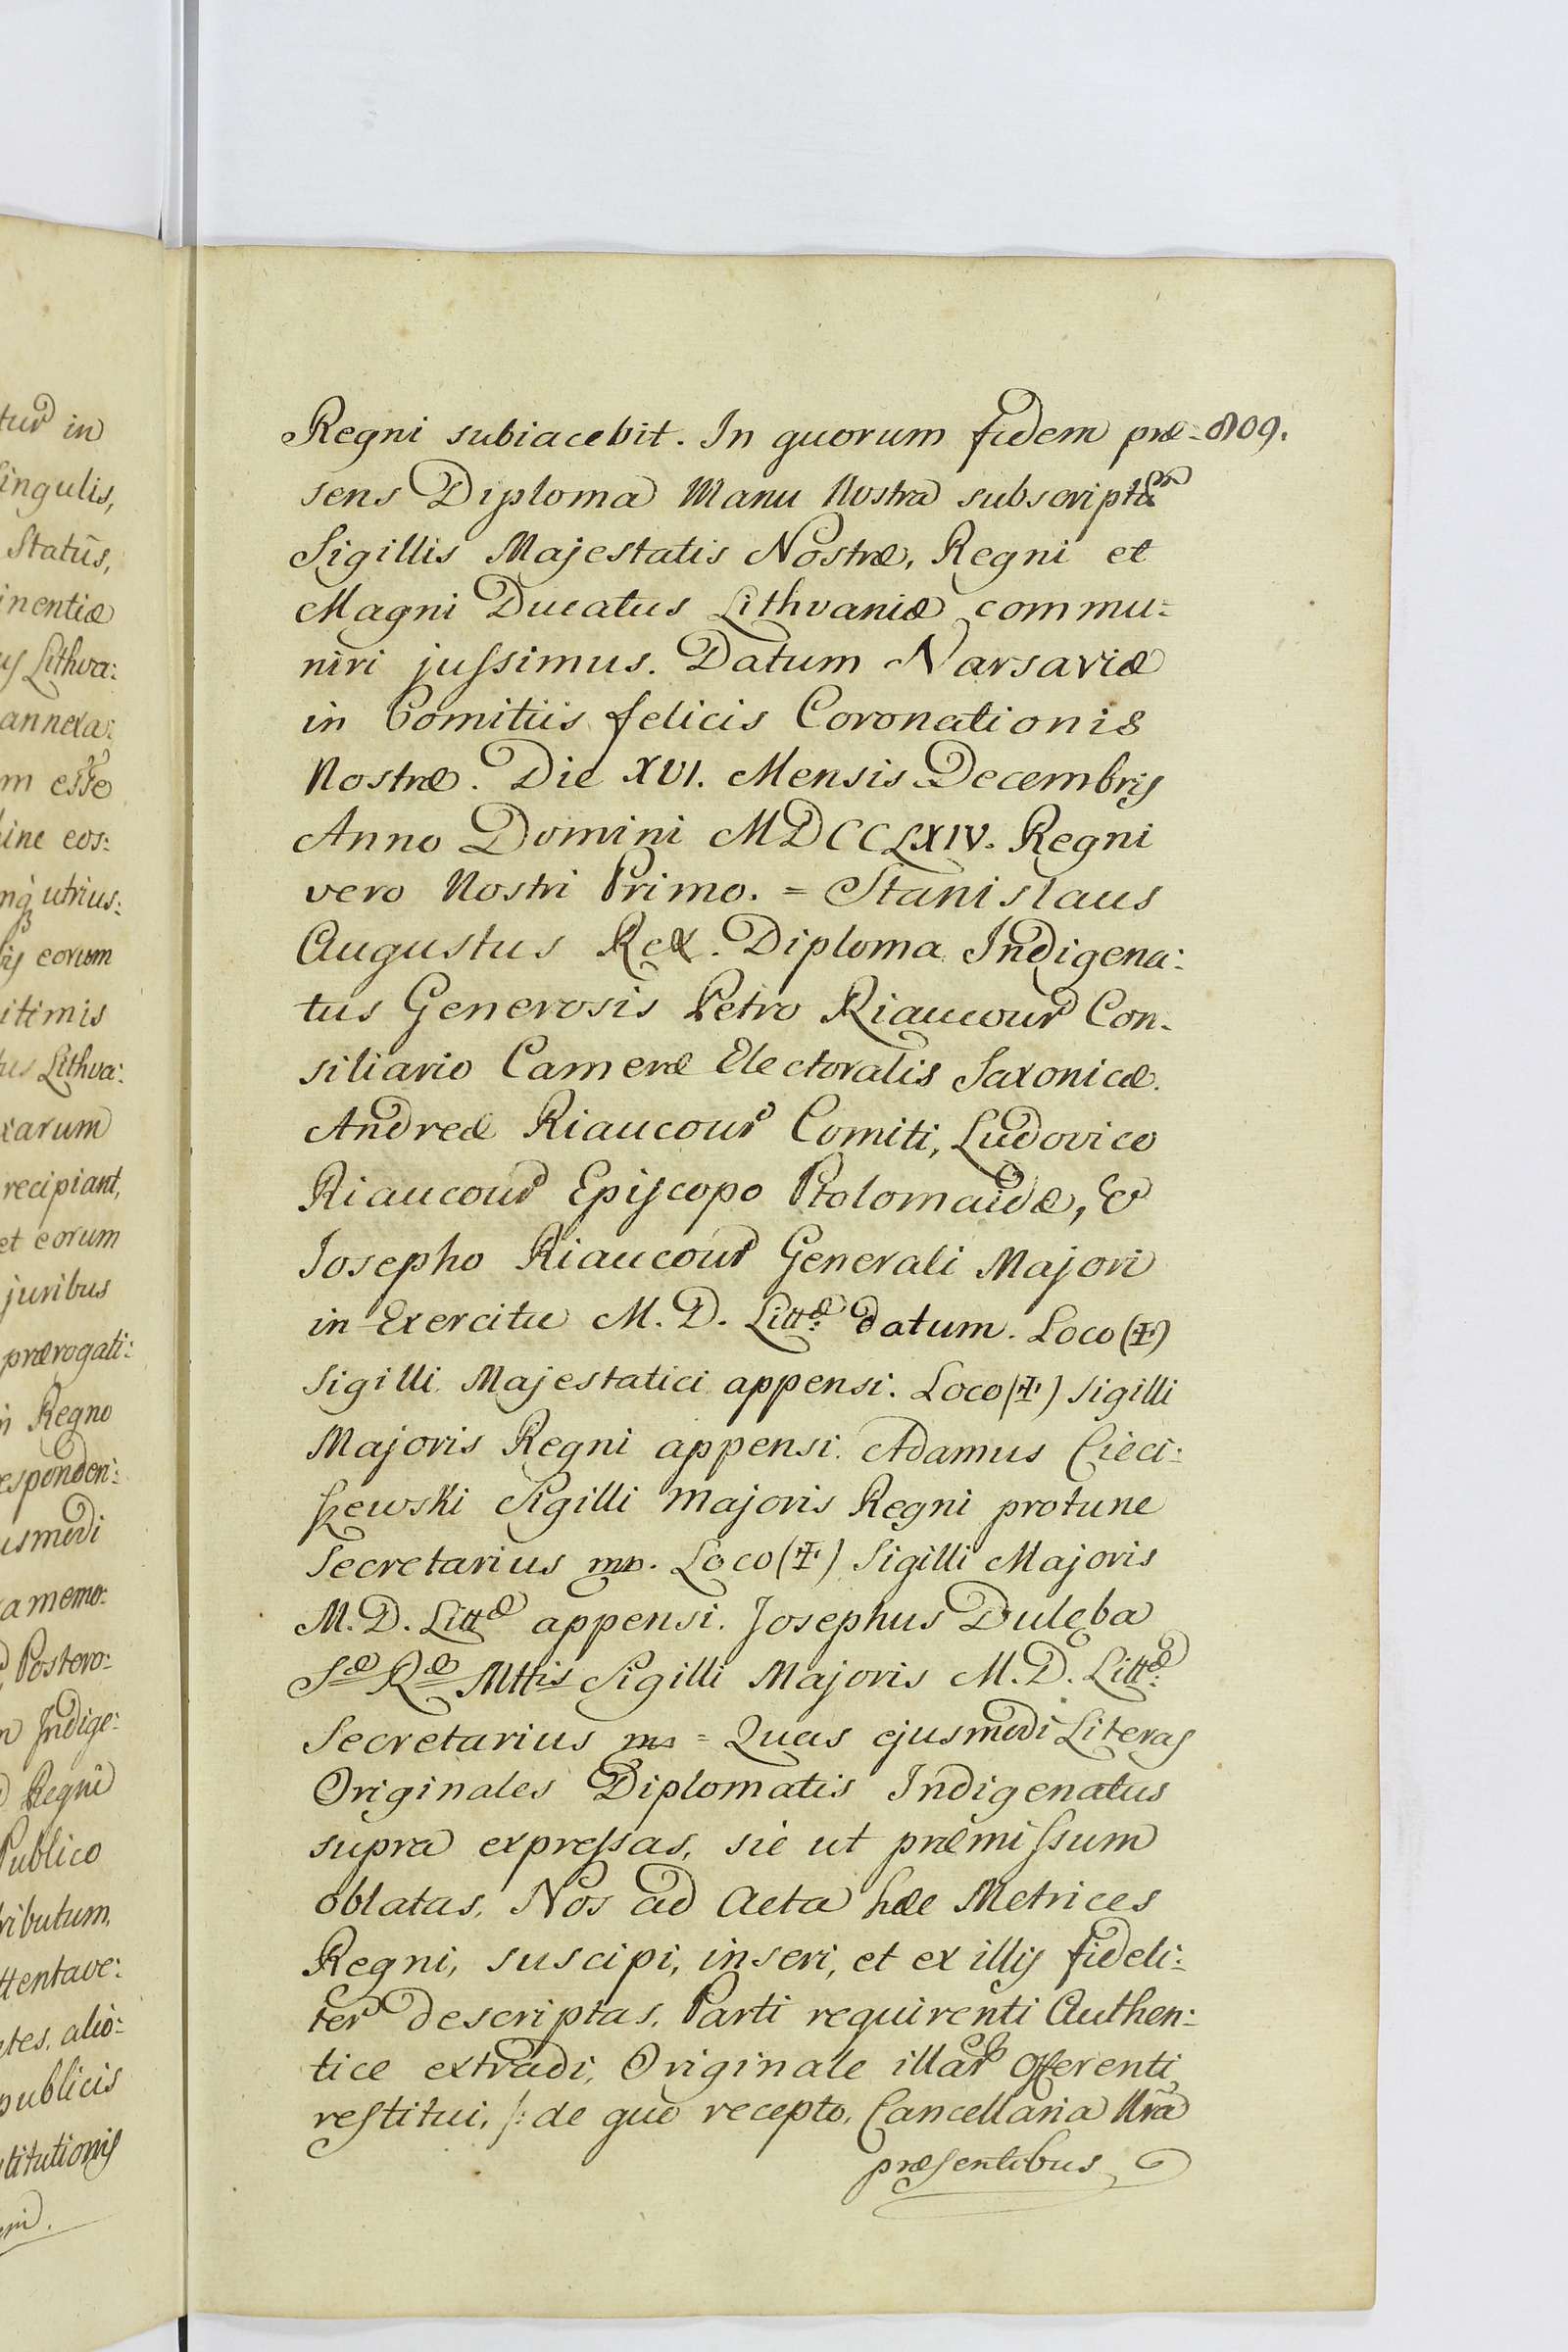 Regni subiacebit. In quorum fidem præ- 809.
sens Diploma Manu Nostra subscriptũ
Sigillis Majestatis Nostræ, Regni et
Magni Ducatus Lithvaniæ commu:
niri jussimus. Datum Varsaviæ
in Comitiis felicis Coronationis
Nostræ. Die XVI. Mensis Decembris
Anno Domini MDCCLXIV. Regni
vero Nostri Primo. = Stanislaus
Augustus Rex. Diploma Indigena:
tus Generosis Petro Riaucour Con-
siliario Cameræ Electoralis Saxonicæ.
Andreæ Riaucour Comiti, Ludovico
Riaucour Episcopo Ptolomaidæ, &
Josepho Riaucour Generali Majori
in Exercitu M. D. Littæ: datum. Loco (✠)
Sigilli Majestatici appensi. Loco (✠) Sigilli
Majoris Regni appensi. Adamus Cieci:
szewski Sigilli Majoris Regni protunc
Secretarius mp. Loco (✠) Sigilli Majoris
M. D. Littæ appensi. Josephus Dulęba
Sæ Ræ Mttis Sigilli Majoris M. D. Littæ:
Secretarius mp = Quas ejusmodi Literas
Originales Diplomatis Indigenatus
supra expressas, sic ut præmissum
oblatas, Nos ad Acta hæc Metrices
Regni, suscipi, inseri, et ex illis fideli:
ter descriptas, Parti requirenti Authen:
tice extradi, Originale illar Offerenti
restitui, /: de quo recepto, Cancellaria Nra
præsentibus
tur in
singulis,
Statûs,
inentiæ
us Lithva:
annexa:
m esse
hinc eos:
utrius:
eorum
itimis
tus Lithva:
xarum
recipiant,
et eorum
juribus
prærogati:
in Regno
esponden:
usmodi
a memo:
Postero:
n Indige:
Regni
Publico
tributum,
ttentave:
tes, alio:
publicis
stitutionis